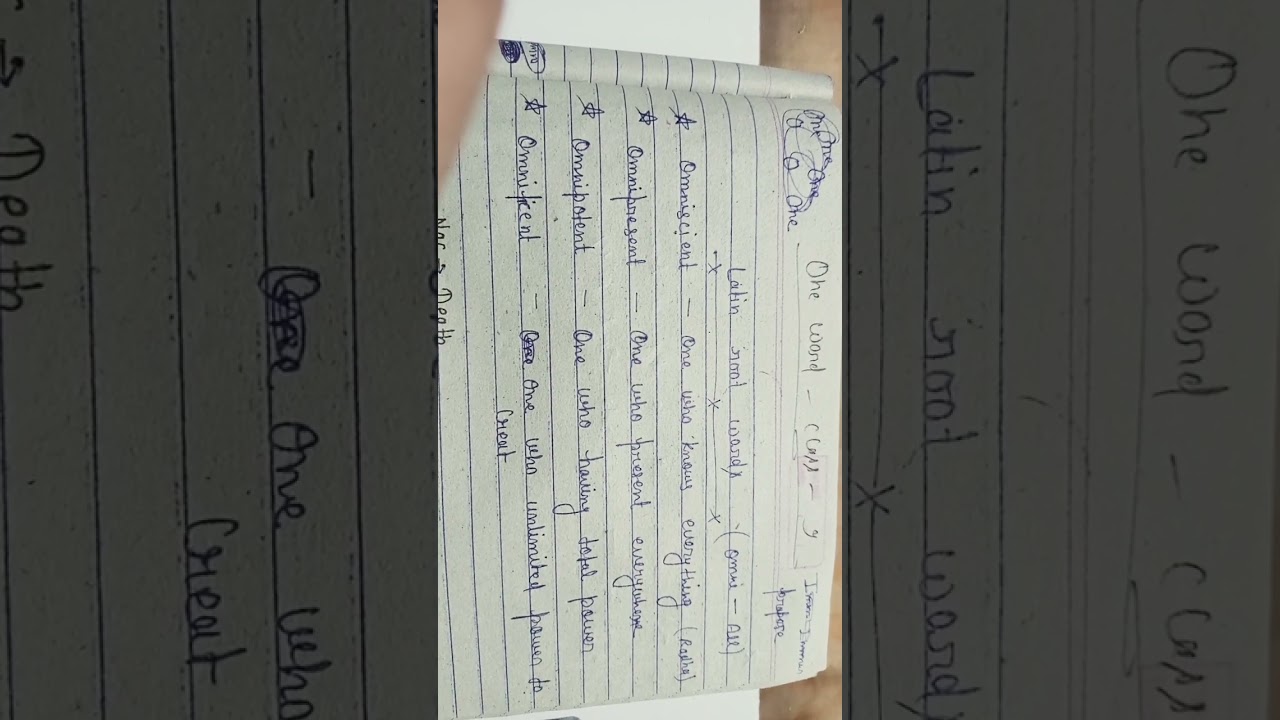 One word - class - 9
Latin root words (omni - All)
☆ Omniscient - one who knows everything (Radha)
☆ Omnipresent - One who present everywhere
☆ Omnipotent - One who having total power
☆ Omnificent - One who unlimited power to
Creat
Nec → Death